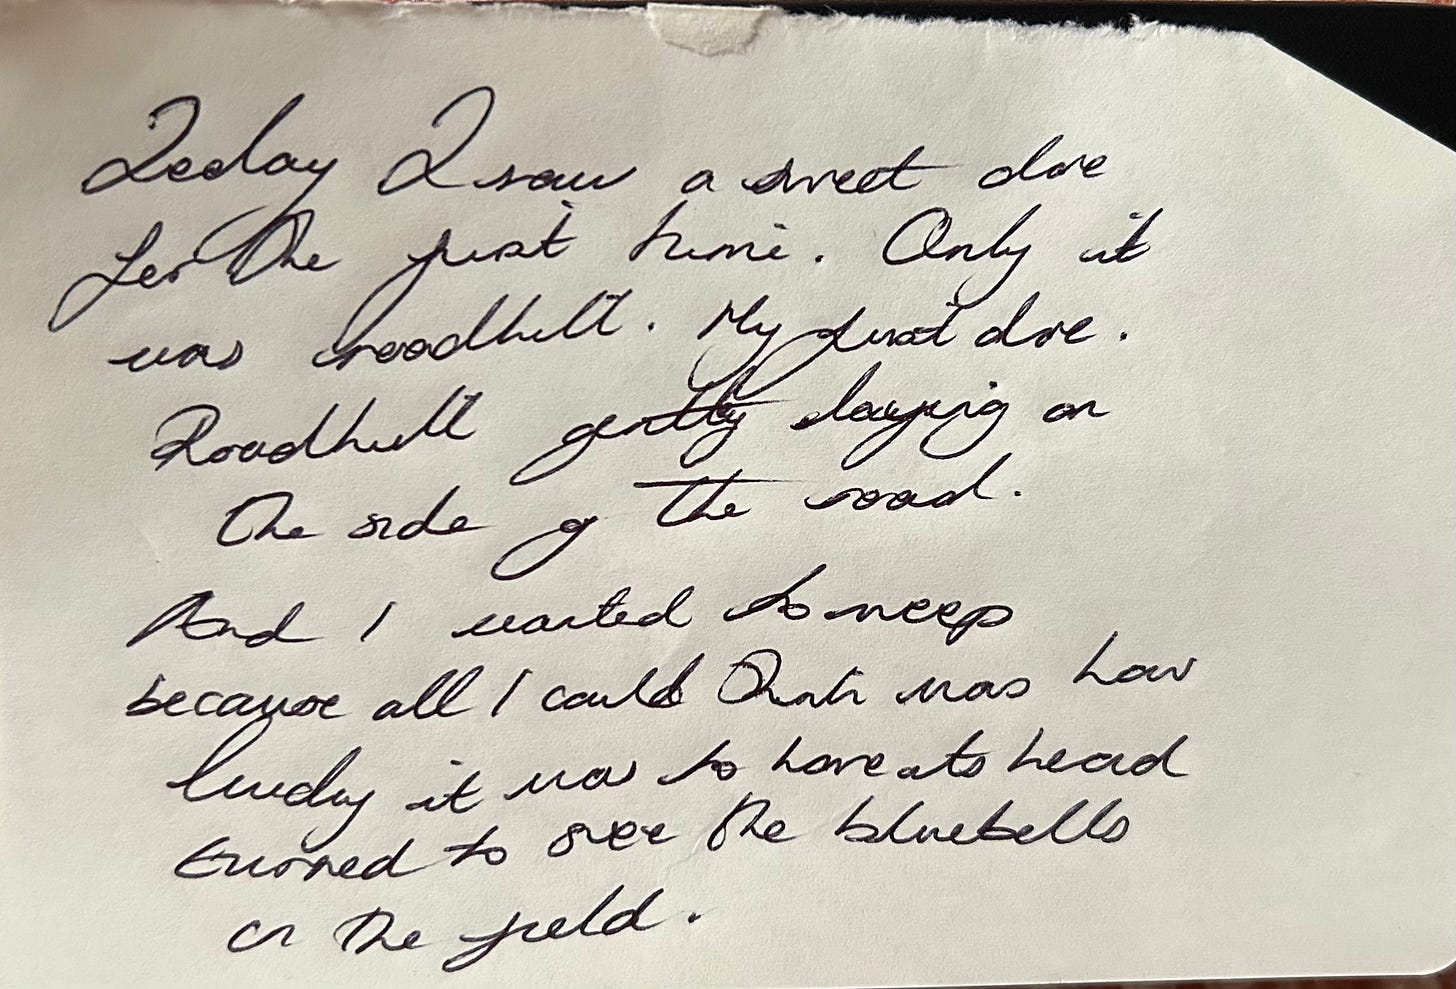 Today I saw a sweet doe
for the first time. Only it
was roadkill. My first doe.
Roadkill gently laying on
the side of the road.
And I wanted to weep
because all I could think was how
lucky it was to have its head
turned to see the bluebells
in the field.